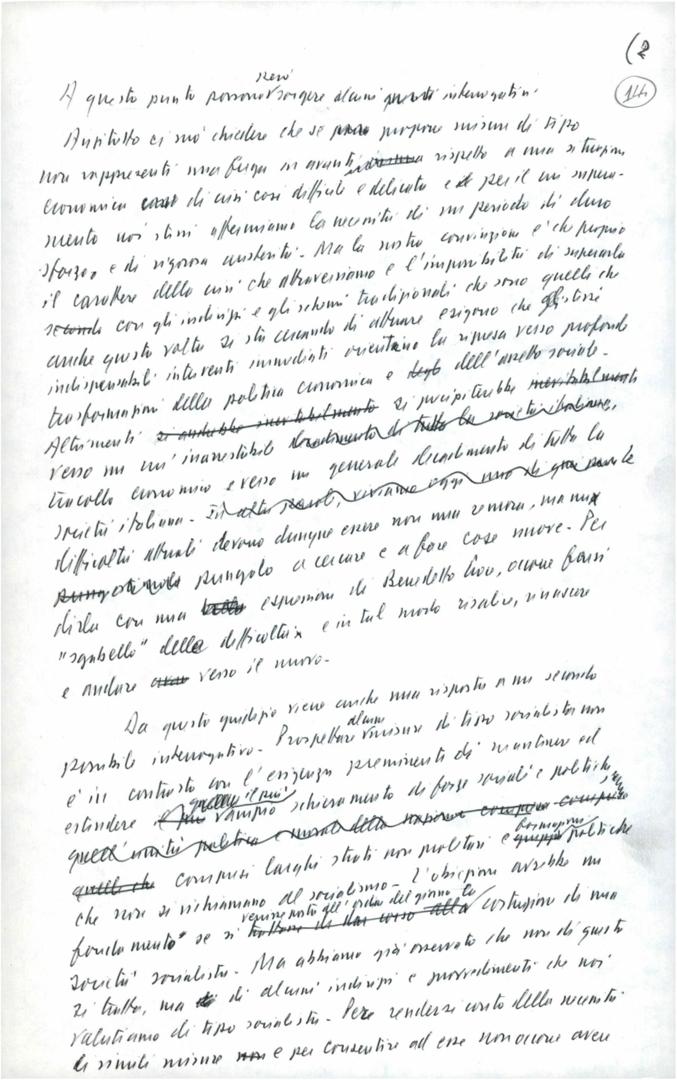 (2
14
A questo punto possono però sorgere alcuni interrogativi.
Anzitutto ci si può chiedere che se proporre misure di tipo
non rappresenti una fuga in avanti rispetto a una situazione
economica di crisi così difficile e delicata e per il cui supera-
mento noi stessi affermiamo la necessità di un periodo di duro
sforzo e di rigorosa austerità. Ma la nostra convinzione è che proprio
il carattere della crisi che attraversiamo e l'impossibilità di superarla
secondo con gli indirizzi e gli schemi tradizionali che sono quelli che
anche questa volta si sta cercando di attuare esigono che gli stessi
indispensabili interventi immediati orientino la ripresa verso profonde
trasformazioni della politica economica e dell'assetto sociale.
Altrimenti si andrebbe inevitabilmente si precipiterebbe inevitabilmente
verso un inarrestabile decadimento di tutta la società italiana,
tracollo economico e verso un generale decadimento di tutta la
società italiana. In altre parole, viviamo oggi uno di quei Le
difficoltà attuali devono dunque essere non una remora, ma un
pungolo a cercare e a fare cose nuove. Per
dirla con una bella espressione di Benedetto Croce, occorre farsi
"sgabello" delle difficoltà e in tal modo risalire, rinascere
e andare verso il nuovo.
Da questo giudizio viene anche una risposta a un secondo
possibile interrogativo. Prospettare alcune misure di tipo socialista non
è in contrasto con l'esigenza preminente di mantenere ed
estendere il più vasto schieramento di forze sociali e politiche,
quell'unità politica e morale della nazione
quelli che compresi larghi strati non proletari e formazioni politiche
che non si richiamano al socialismo. L'obiezione avrebbe un
fondamento se si venisse posta all'ordine del giorno la costruzione di una
società socialista. Ma abbiamo già osservato che non di questo
si tratta, ma di alcuni indirizzi e provvedimenti che noi
valutiamo di tipo socialista. Per rendersi conto della necessità
di simili misure non e per consentire ad esse non occorre avere